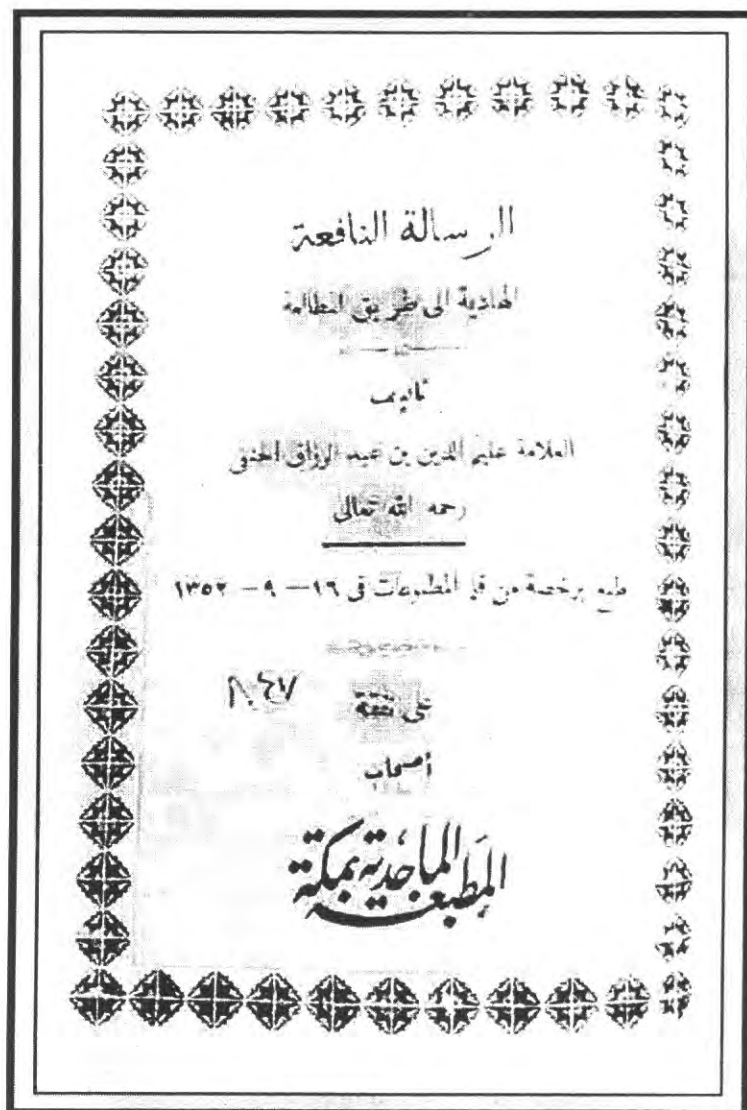 الرسالة النافعة
الهادية الى طريق المطالعة
تأليف
العلامة عليم الدين بن عبد الرزاق الحنفى
رحمه الله تعالى
طبع برخصة من قلم المطبوعات فى ١٦ — ٩ — ١٣٥٢
على نفقة
أصحاب
المطبعة الماجدية بمكة